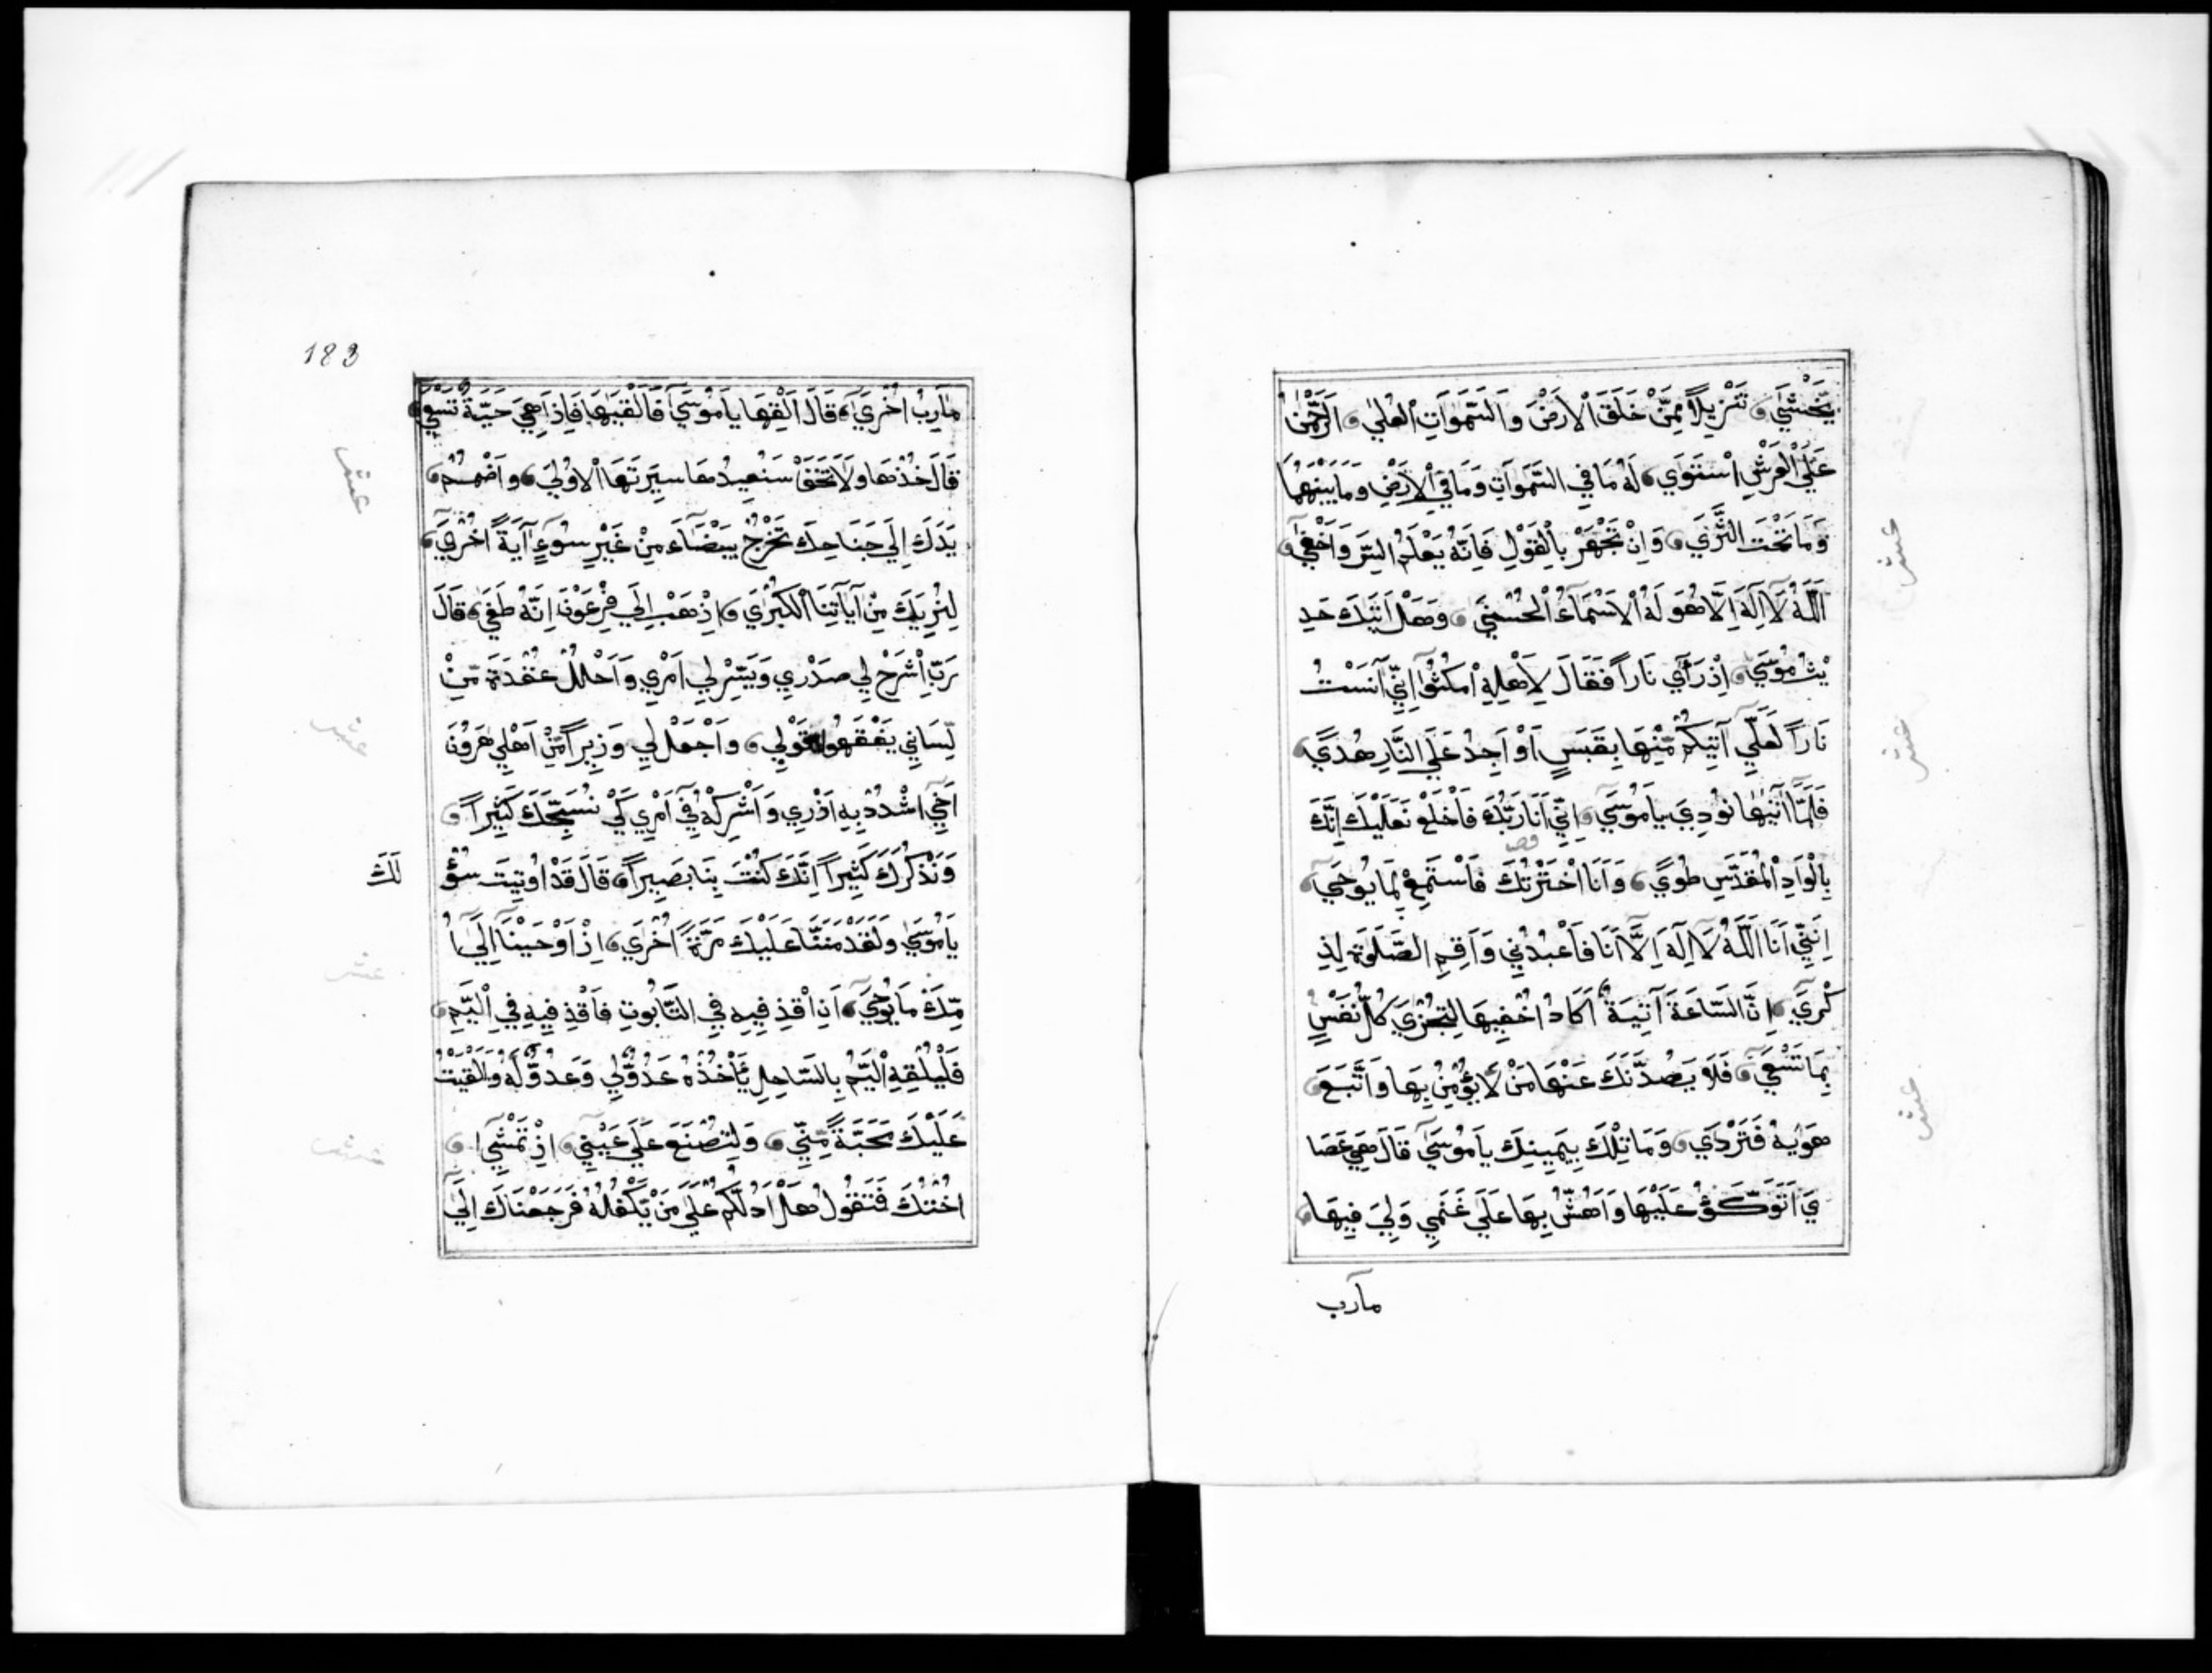 يَخْشَي تَنْزِيلاً مِمَّنْ خَلَقَ الْاَرْضَ وَالسَّمَوَاتِ الْعُلَي اَلرَّحْمٰنُ
عَلَي الْعَرْشِ اسْتَوَي لَهُ مَا فِي السَّمَوَاتِ وَمَا فِي الْاَرْضِ وَمَا بَيْنَهُمَا
وَمَا تَحْتَ الثَّرَي وَاِنْ تَجْهَرْ بِالْقَوْلِ فَاِنَّهُ يَعْلَمُ السِّرَ وَاَخْفَي
اَللّٰهُ لَا اِلَهَ اِلَّا هُوَ لَهُ الْاَسْمَاءُ الْحُسْنَي وَهَلْ اَتَيكَ حَدِ
يْثُ مُوْسَي اِذْ رَآَي نَاراً فَقَالَ لِاَهْلِهِ امْكُثُوا اِنِّي آنَسْتُ
نَاراً لَعَلِّي آتِيكُمْ مِّنْهَا بِقَبَسٍ اَوْ اَجِدُ عَلَي النَّارِ هُدًي
فَلَمَّا اَتَيٰهَا نُودِيَ يَامُوسَي اِنِّي اَنَا رَبُّكَ فَاخْلَعْ نَعْلَيْكَ اِنَّكَ
بِالْوَادِ الْمُقَدَّسِ طُوًي وَاَنَا اخْتَرْتُكَ فَاسْتَمِعْ لِمَا يُوحَي
اِنَّنِي اَنَا اللّٰهُ لَا اِلَهَ اِلَّا اَنَا فَاعْبُدْنِي وَاَقِمِ الصَّلَوٰةَ لِذِ
كْرِيَ اِنَّ السَّاعَةَ آتِيَةٌ اَكَادُ اُخْفِيهَا لِتُجْزَي كُلُّ نَفْسٍ
بِمَا تَسْعَي فَلَا يَصُدَّنَّكَ عَنْهَا مَنْ لَا يُؤْمِنُ بِهَا وَاتَّبَعَ
هَوَيٰهُ فَتَرْدَي وَمَا تِلْكَ بِيَمِينِكَ يَامُوسَي قَالَ هِيَ عَصَا
يَ اَتَوَكَّؤُ عَلَيْهَا وَاَهُشُّ بِهَا عَلَي غَنَمِي وَلِيَ فِيهَا
مآرب
عشر
عشر
عشر
183
مَآرِبُ اُخْرَي قَالَ اَلْقِهَا يَامُوسَي فَاَلْقَيٰهَا فَاِذَا هِيَ حَيَّةٌ تَسْعَي
قَالَ خُذْهَا وَلَا تَخَفْ سَنُعِيدُهَا سِيرَتَهَا الْاُولَي وَاضْمُمْ
يَدَكَ اِلَي جَنَاحِكَ تَخْرُجْ بَيْضَاءَ مِنْ غَيْرِ سُوءٍ آيَةً اُخْرَي
لِنُرِيَكَ مِنْ آيَاتِنَا الْكُبْرَي اِذْهَبْ اِلَي فِرْعَوْنَ اِنَّهُ طَغَي قَالَ
رَبِّ اشْرَحْ لِي صَدْرِي وَيَسِّرْ لِي اَمْرِي وَاحْلُلْ عُقْدَةً مِّنْ
لِّسَانِي يَفْقَهُوا قَوْلِي وَاجْعَلْ لِي وَزِيراً مِّنْ اَهْلِي هَرُونَ
اَخِي اشْدُدْ بِهِ اَزْرِي وَاَشْرِكْهُ فِي اَمْرِي كَيْ نُسَبِّحَكَ كَثِيراً
وَنَذْكُرَكَ كَثِيراً اِنَّكَ كُنْتَ بِنَا بَصِيراً قَالَ قَدْ اُوتِيتَ سُؤْ
لَكَ
يَامُوسَي وَلَقَدْ مَنَنَّا عَلَيْكَ مَرَّةً اُخْرَي اِذْ اَوْحَيْنَا اِلَي اُ
مِّكَ مَا يُوحَي اَنِ اقْذِ فِيهِ فِي التَّابُوتِ فَاقْذِ فِيهِ فِي الْيَمِّ
فَلْيُلْقِهِ الْيَمُّ بِالسَّاحِلِ يَأْخُذْهُ عَدُوٌّ لِي وَعَدُوٌّ لَهُ وَاَلْقَيْتُ
عَلَيْكَ مَحَبَّةً مِّنِّي وَلِتُصْنَعَ عَلَي عَيْنِي اِذْ تَمْشِي
اُخْتُكَ فَتَقُولُ هَلْ اَدُلُّكُمْ عَلَي مَنْ يَّكْفُلُهُ فَرَجَعْنَاكَ اِلَي
عشر
عشر
عشر
عشر